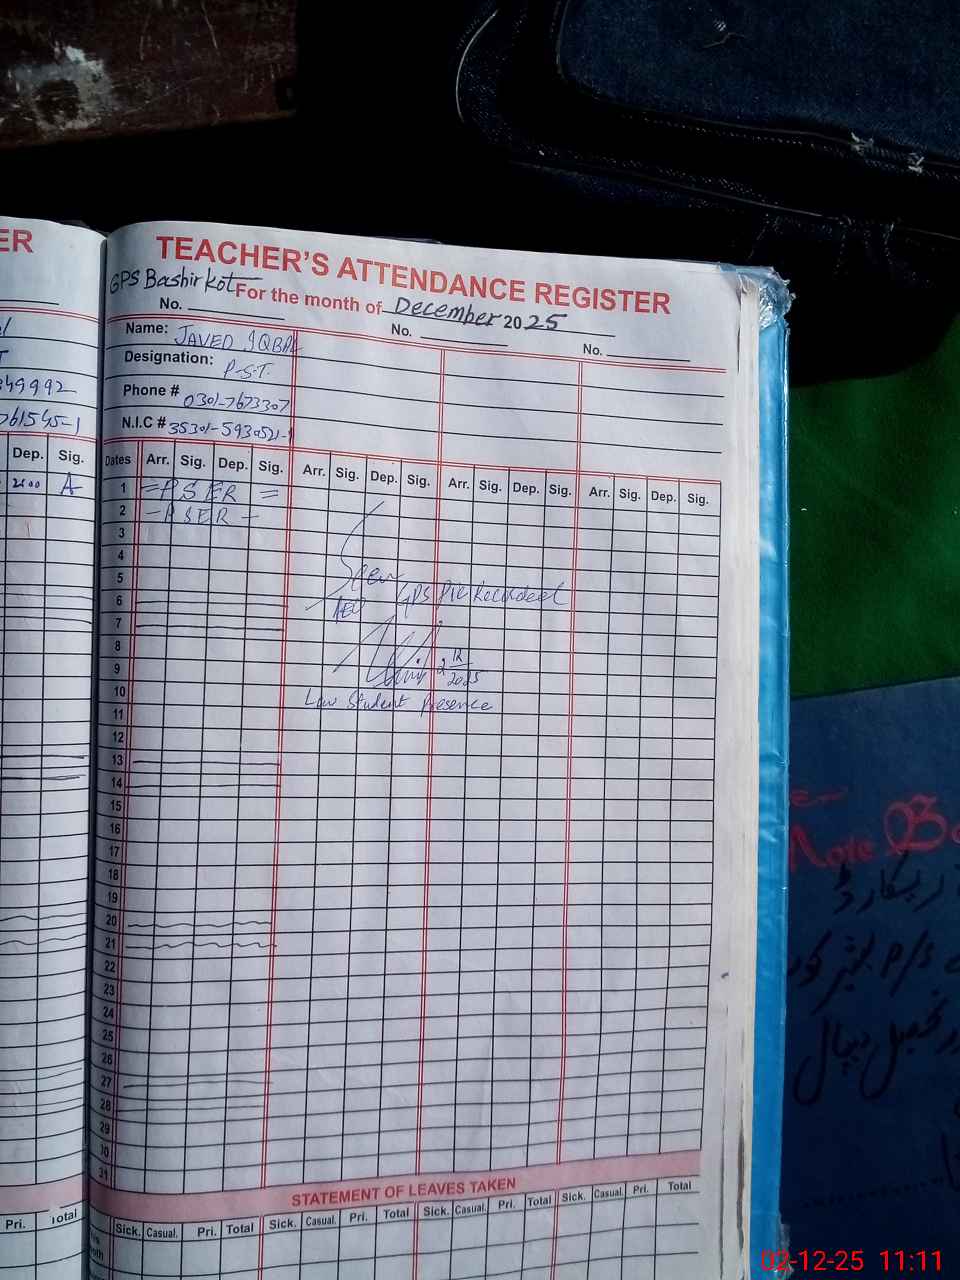 ER
TEACHER'S ATTENDANCE REGISTER
GPS Bashir Kot For the month of December 2025
No. No. No.
Name: JAVED IQBAL
Designation: P.S.T.
Phone # 0301-7673307
N.I.C # 35301-5930521-1
349992
761545-1
Dep. Sig.
2:00 A
Dates Arr. Sig. Dep. Sig. Arr. Sig. Dep. Sig. Arr. Sig. Dep. Sig. Arr. Sig. Dep. Sig.
1 = PSER =
2 - PSER -
3
4
5
Seen
6
AEO GPS Pic Recorded
7
8
9
2 12
2025
10
Low Student Presence
11
12
13
14
15
16
17
18
19
20
21
22
23
24
25
26
27
28
29
30
31
STATEMENT OF LEAVES TAKEN
Pri. Total
Sick. Casual. Pri. Total Sick. Casual. Pri. Total Sick. Casual. Pri. Total Sick. Casual. Pri. Total
Note Bo
ریکارڈ
P/S بشیر کوٹ
تحصیل دیپال
02-12-25 11:11